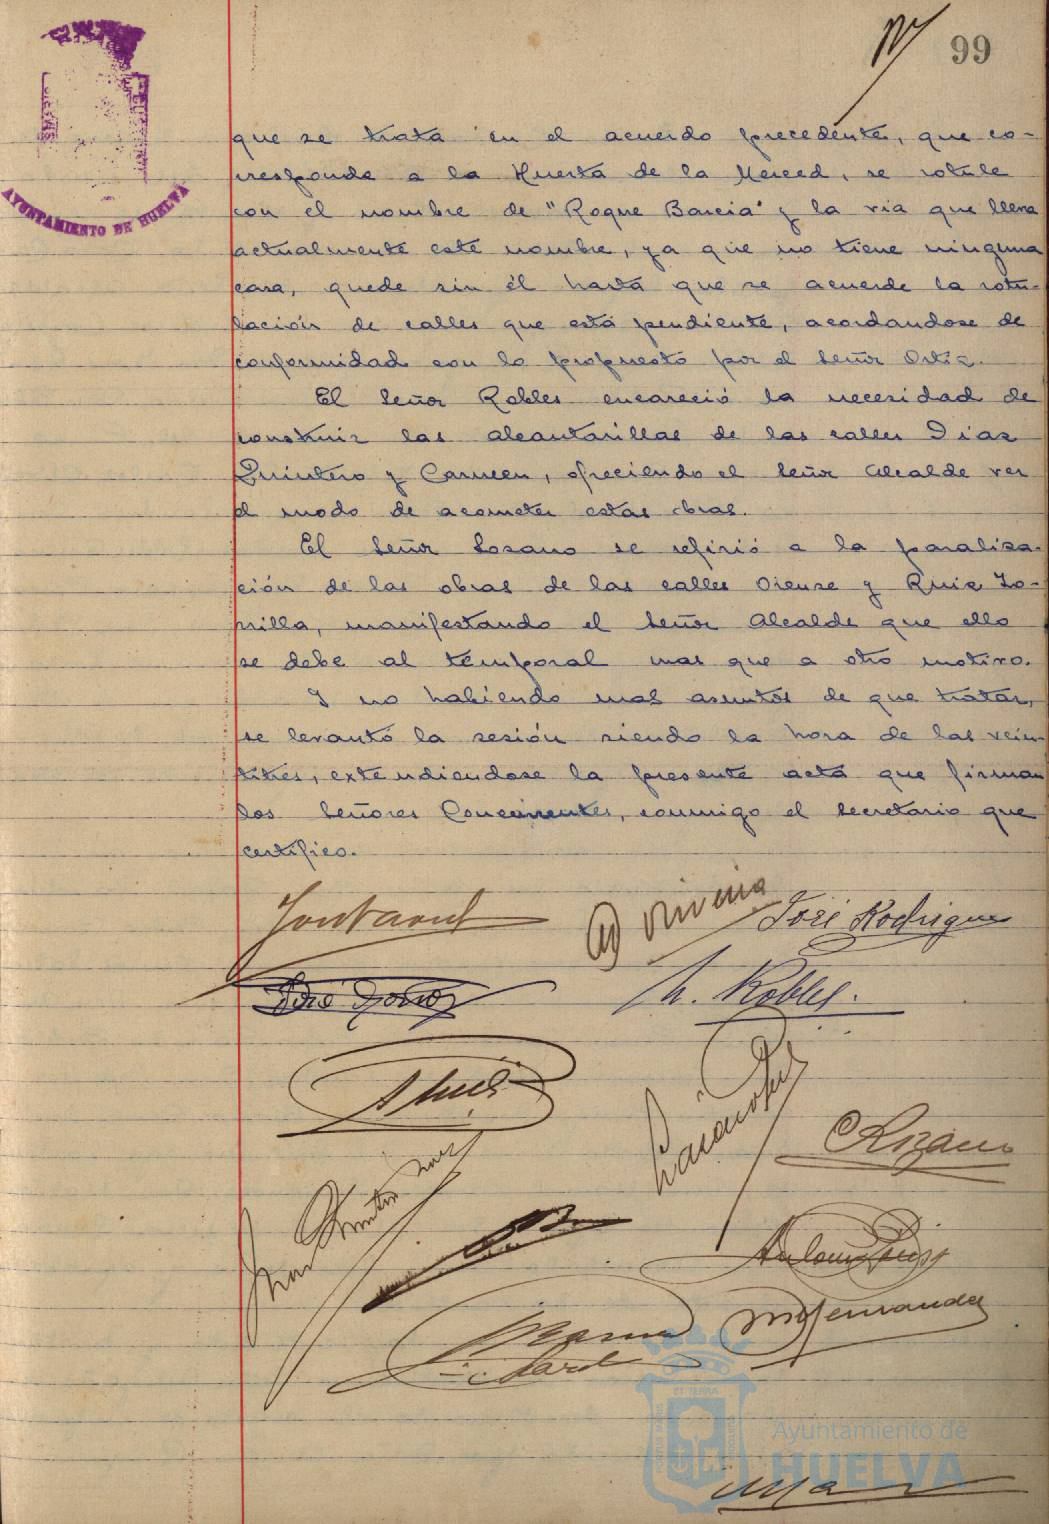 99
AYUNTAMIENTO DE HUELVA
que se trata en el acuerdo precedente, que co-
rresponde a la Huerta de la Merced, se rotule
con el nombre de "Roque Barcia" y la via que lleva
actualmente este nombre, ya que no tiene ninguna
casa, quede sin él hasta que se acuerde la rotu-
lación de calles que está pendiente, acordandose de
conformidad con lo propuesto por el Señor Ortiz.
El Señor Robles encareció la necesidad de
construir las alcantarillas de las calles Diaz
Quintero y Carmen, ofreciendo el Señor Alcalde ver
el modo de acometer estas obras.
El Señor Lozano se refirió a la paraliza-
ción de las obras de las calles Orense y Ruiz Zo-
rrilla, manifestando el Señor Alcalde que ello
se debe al temporal mas que a otro motivo.
Y no habiendo mas asuntos de que tratar,
se levantó la sesión siendo la hora de las vein-
titres, extendiendose la presente acta que firman
los Señores Concurrentes, conmigo el Secretario que
certifico.
José Rodriguez
Robles.
Lozano
Antonio Ruiz
Hernandez
Ayuntamiento de
HUELVA